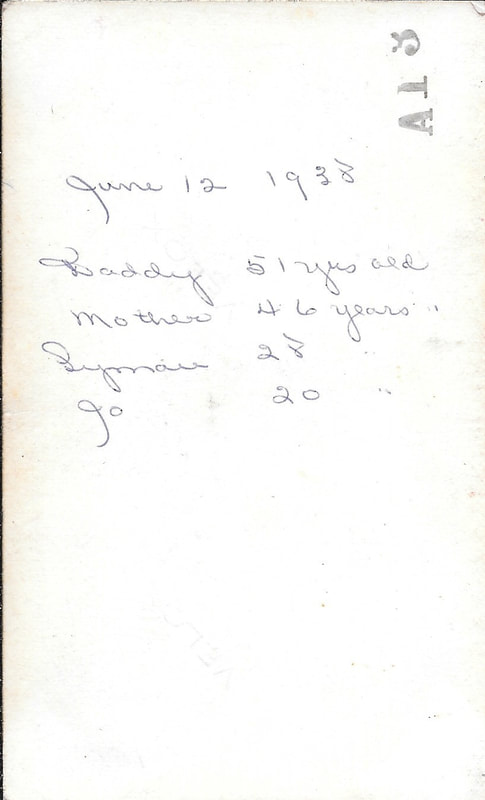 June 12 1938
Daddy 51 yrs old
Mother 46 years "
Lyman 28 "
Jo 20 "